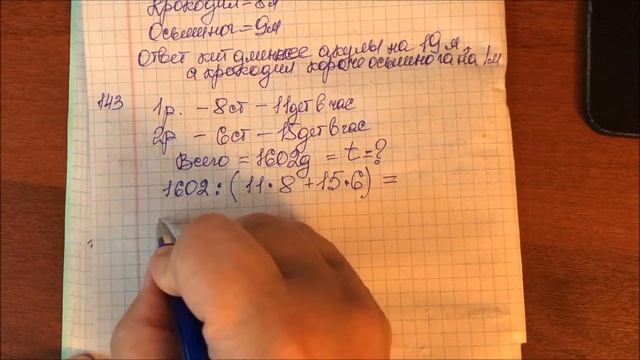 Крокодил = 8м
Осьминог = 9м
Ответ кит длиннее акулы на 19 м,
а крокодил короче осьминога на 1м
143
1р. - 8ст - 11дет в час
2р - 6ст - 15дет в час
Всего = 1602д = t = ?
1602 : ( 11 · 8 + 15 · 6 ) =